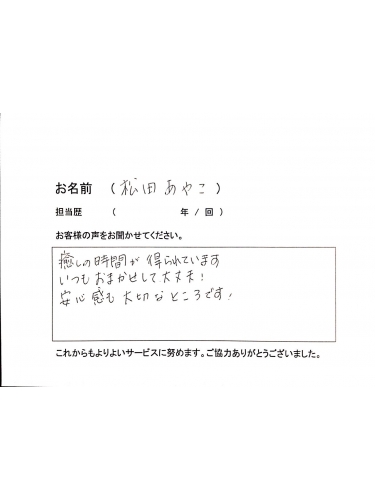 お名前 (松田あやこ)
担当歴 ( 年 / 回)
お客様の声をお聞かせてください。
癒しの時間が得られています
いつもおまかせして大丈夫!
安心感も大切なところです!
これからもよりよいサービスに努めます。ご協力ありがとうございました。